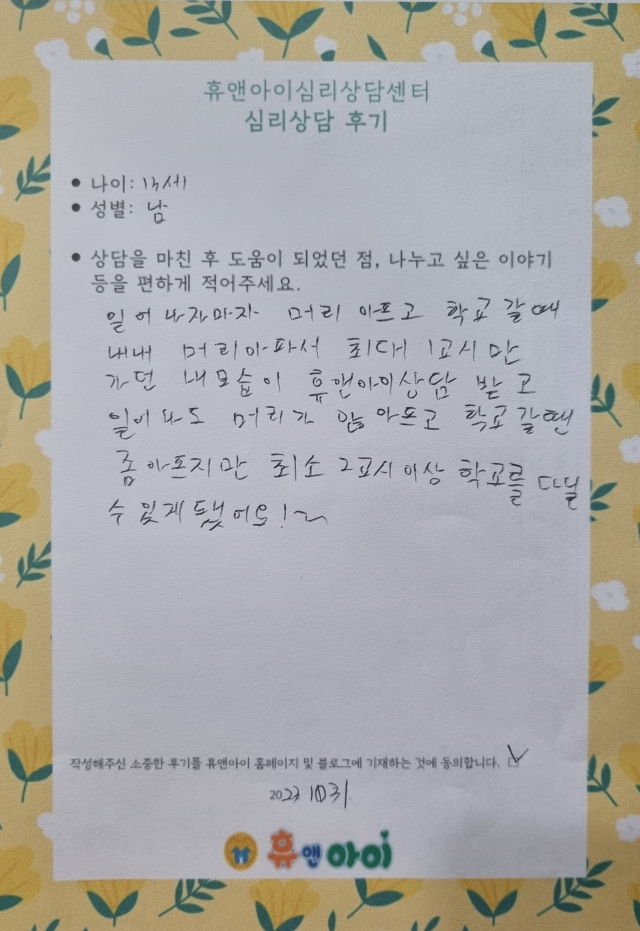 휴앤아이심리상담센터
심리상담 후기
• 나이: 13세
• 성별: 남
• 상담을 마친 후 도움이 되었던 점, 나누고 싶은 이야기
등을 편하게 적어주세요.
일어나자마자 머리 아프고 학교 갈때
내내 머리아파서 최대 1교시만
가던 내모습이 휴앤아이상담 받고
일어나도 머리가 않 아프고 학교 갈땐
좀 아프지만 최소 2교시 이상 학교를 다닐
수 있게 됐어요!~
작성해주신 소중한 후기를 휴앤아이 홈페이지 및 블로그에 기재하는 것에 동의합니다.
2023 10 31.
휴앤아이